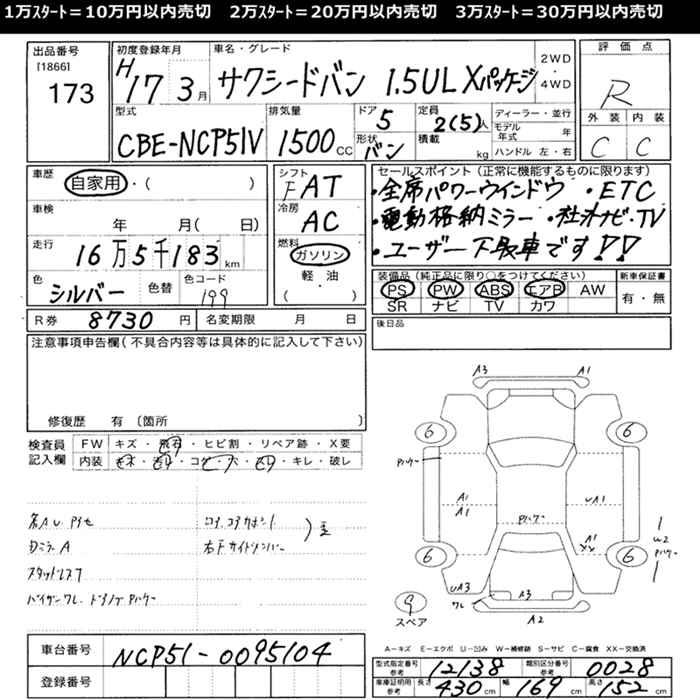 1万ｽﾀｰﾄ＝10万円以内売切　2万ｽﾀｰﾄ＝20万円以内売切　3万ｽﾀｰﾄ＝30万円以内売切
出品番号
[1866]
173
初度登録年月
H17 3月
車名・グレード
サクシードバン 1.5UL Xパッケージ
2WD
4WD
評価点
R
外装 内装
C C
型式
CBE-NCP51V
排気量
1500cc
ドア
5
形状
バン
定員
2(5)人
積載
kg
ディーラー・並行
モデル年式 年
ハンドル 左・右
車歴
自家用・( )
車検
年 月( 日)
走行
16万5千183km
色
シルバー
色替
色コード
199
シフト
FAT
冷房
AC
燃料
ガソリン
軽・油
( )
セールスポイント（正常に機能するものに限ります）
・全席パワーウインドウ ・ETC
・電動格納ミラー ・社外ナビ・TV
・ユーザー下取車です!!
装備品（純正品に限り○をつけてください）
PS PW ABS エアB AW
SR ナビ TV カワ
新車保証書
有・無
R券 8730円 名変期限 月 日
後日品
注意事項申告欄（不具合内容等は具体的に記入して下さい）
修復歴 有〔箇所 〕
検査員
記入欄
FW キズ・飛石・ヒビ割・リペア跡・X要
内装 キズ・汚れ・コゲ・穴・スレ・キレ・破レ
スタッドレス7
A3 A1
6 6
A1
A1
UA1
A1
XX
W2
6 6
UA3
A3
A2
9
スペア
A－キズ E－エクボ U－凹み W－補修跡 S－サビ C－腐食 XX－交換済
車台番号 NCP51-0095104
登録番号
型式指定番号 参考 12138 類別区分番号 参考 0028
車庫証明用 参考 長さ 430cm 幅 169cm 高さ 152cm